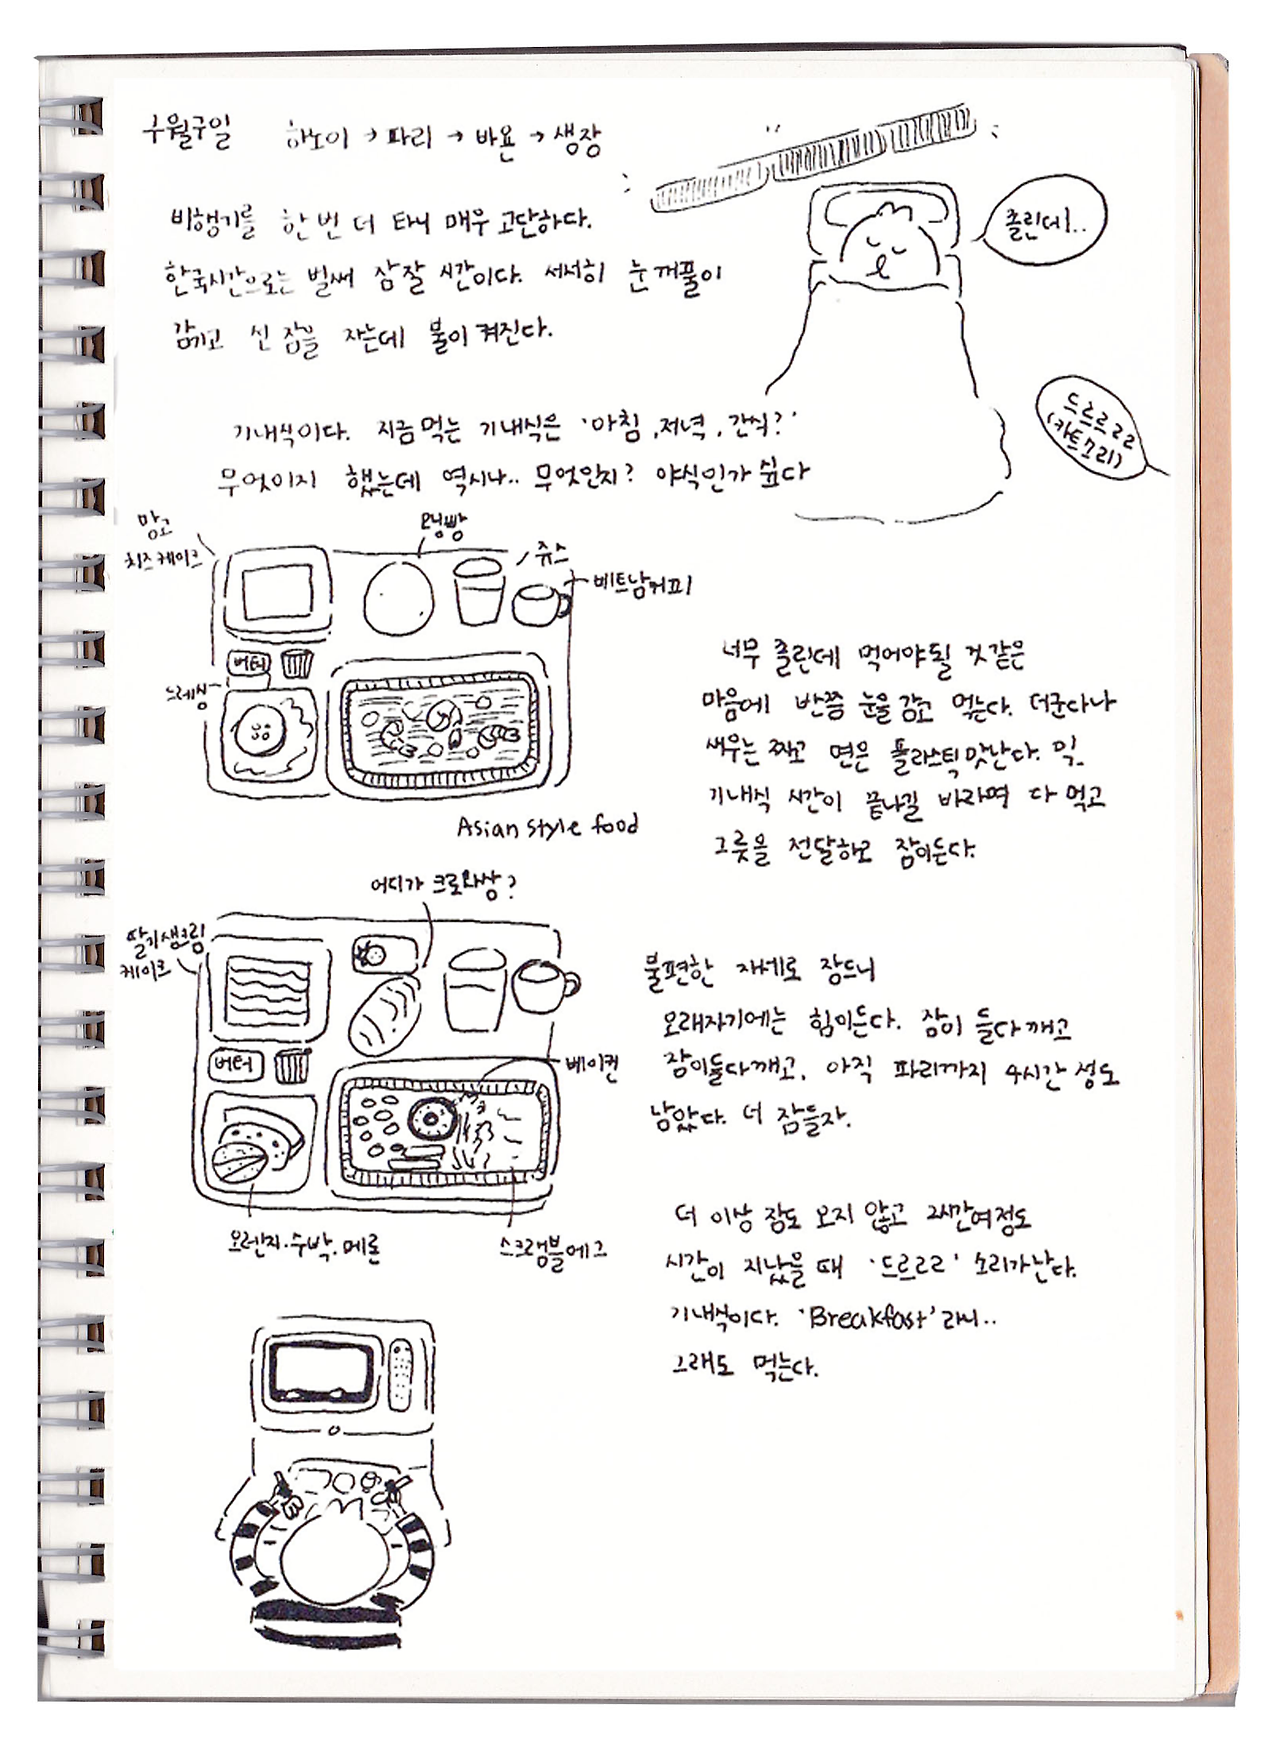 구월구일 하노이 → 파리 → 바욘 → 생장
비행기를 한 번 더 타니 매우 고단하다.
한국시간으로는 벌써 잠잘 시간이다. 서서히 눈꺼풀이
감기고 선잠을 자는데 불이 켜진다.
졸린데..
드르르르
(카트소리)
기내식이다. 지금 먹는 기내식은 '아침, 저녁, 간식?'
무엇이지 했는데 역시나.. 무엇인지? 야식인가 싶다
망고
치즈케이크
모닝빵
쥬스
베트남커피
버터
드레싱
Asian style food
너무 졸린데 먹어야 될 것 같은
마음에 반쯤 눈을 감고 먹는다. 더군다나
새우는 짜고 면은 플라스틱 맛난다.
기내식 시간이 끝나길 바라며 다 먹고
그릇을 전달하고 잠이든다.
어디가 크로와상?
딸기생크림
케이크
버터
베이컨
오렌지.수박.메론
스크램블에그
불편한 자세로 잠드니
오래자기에는 힘이든다. 잠이 들다 깨고
잠이들다 깨고, 아직 파리까지 4시간 정도
남았다. 더 잠들자.
더 이상 잠도 오지 않고 2시간여정도
시간이 지났을 때 '드르르르' 소리가 난다.
기내식이다. 'Breakfast'라니..
그래도 먹는다.